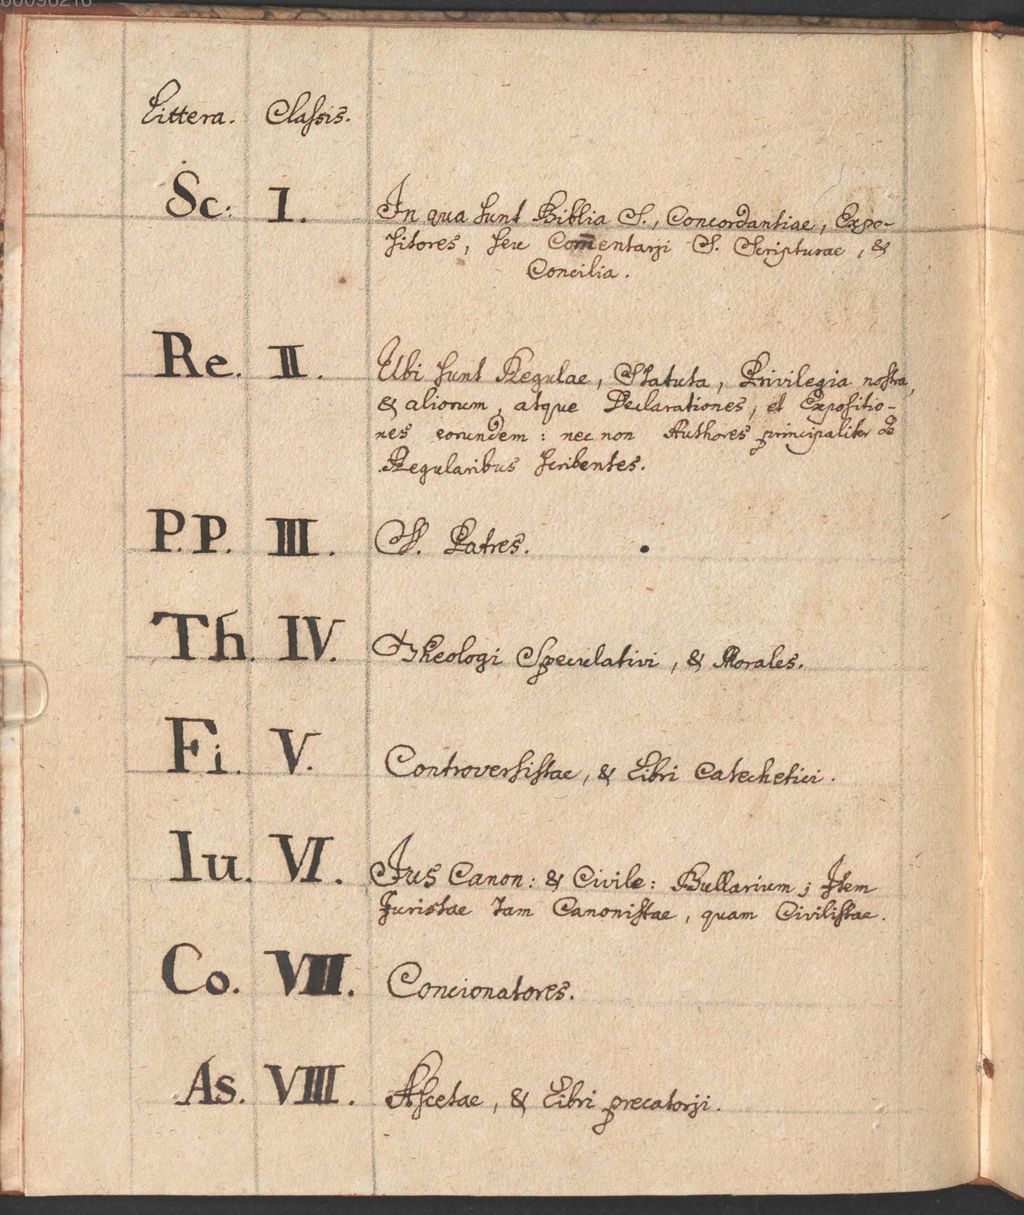 00096216
Littera. Classis.
Sc: I. In qua sunt Biblia S., Concordantiae, Expo-
sitores, seu Com̄entarji S. Scripturae, &
Concilia.
Re. II. Ubi sunt Regulae, Statuta, Privilegia nostra,
& aliorum, atque Declarationes, et Expositio-
nes eorundem: nec non Authores principaliter de
Regularibus scribentes.
P.P. III. S. Patres.
Th. IV. Theologi Speculativi, & Morales.
Fi. V. Controversistae, & Libri Catechetici.
Iu. VI. Jus Canon: & Civile: Bullarium; Item
Juristae tam Canonistae, quam Civilistae.
Co. VII. Concionatores.
As. VIII. Ascetae, & Libri precatorji.